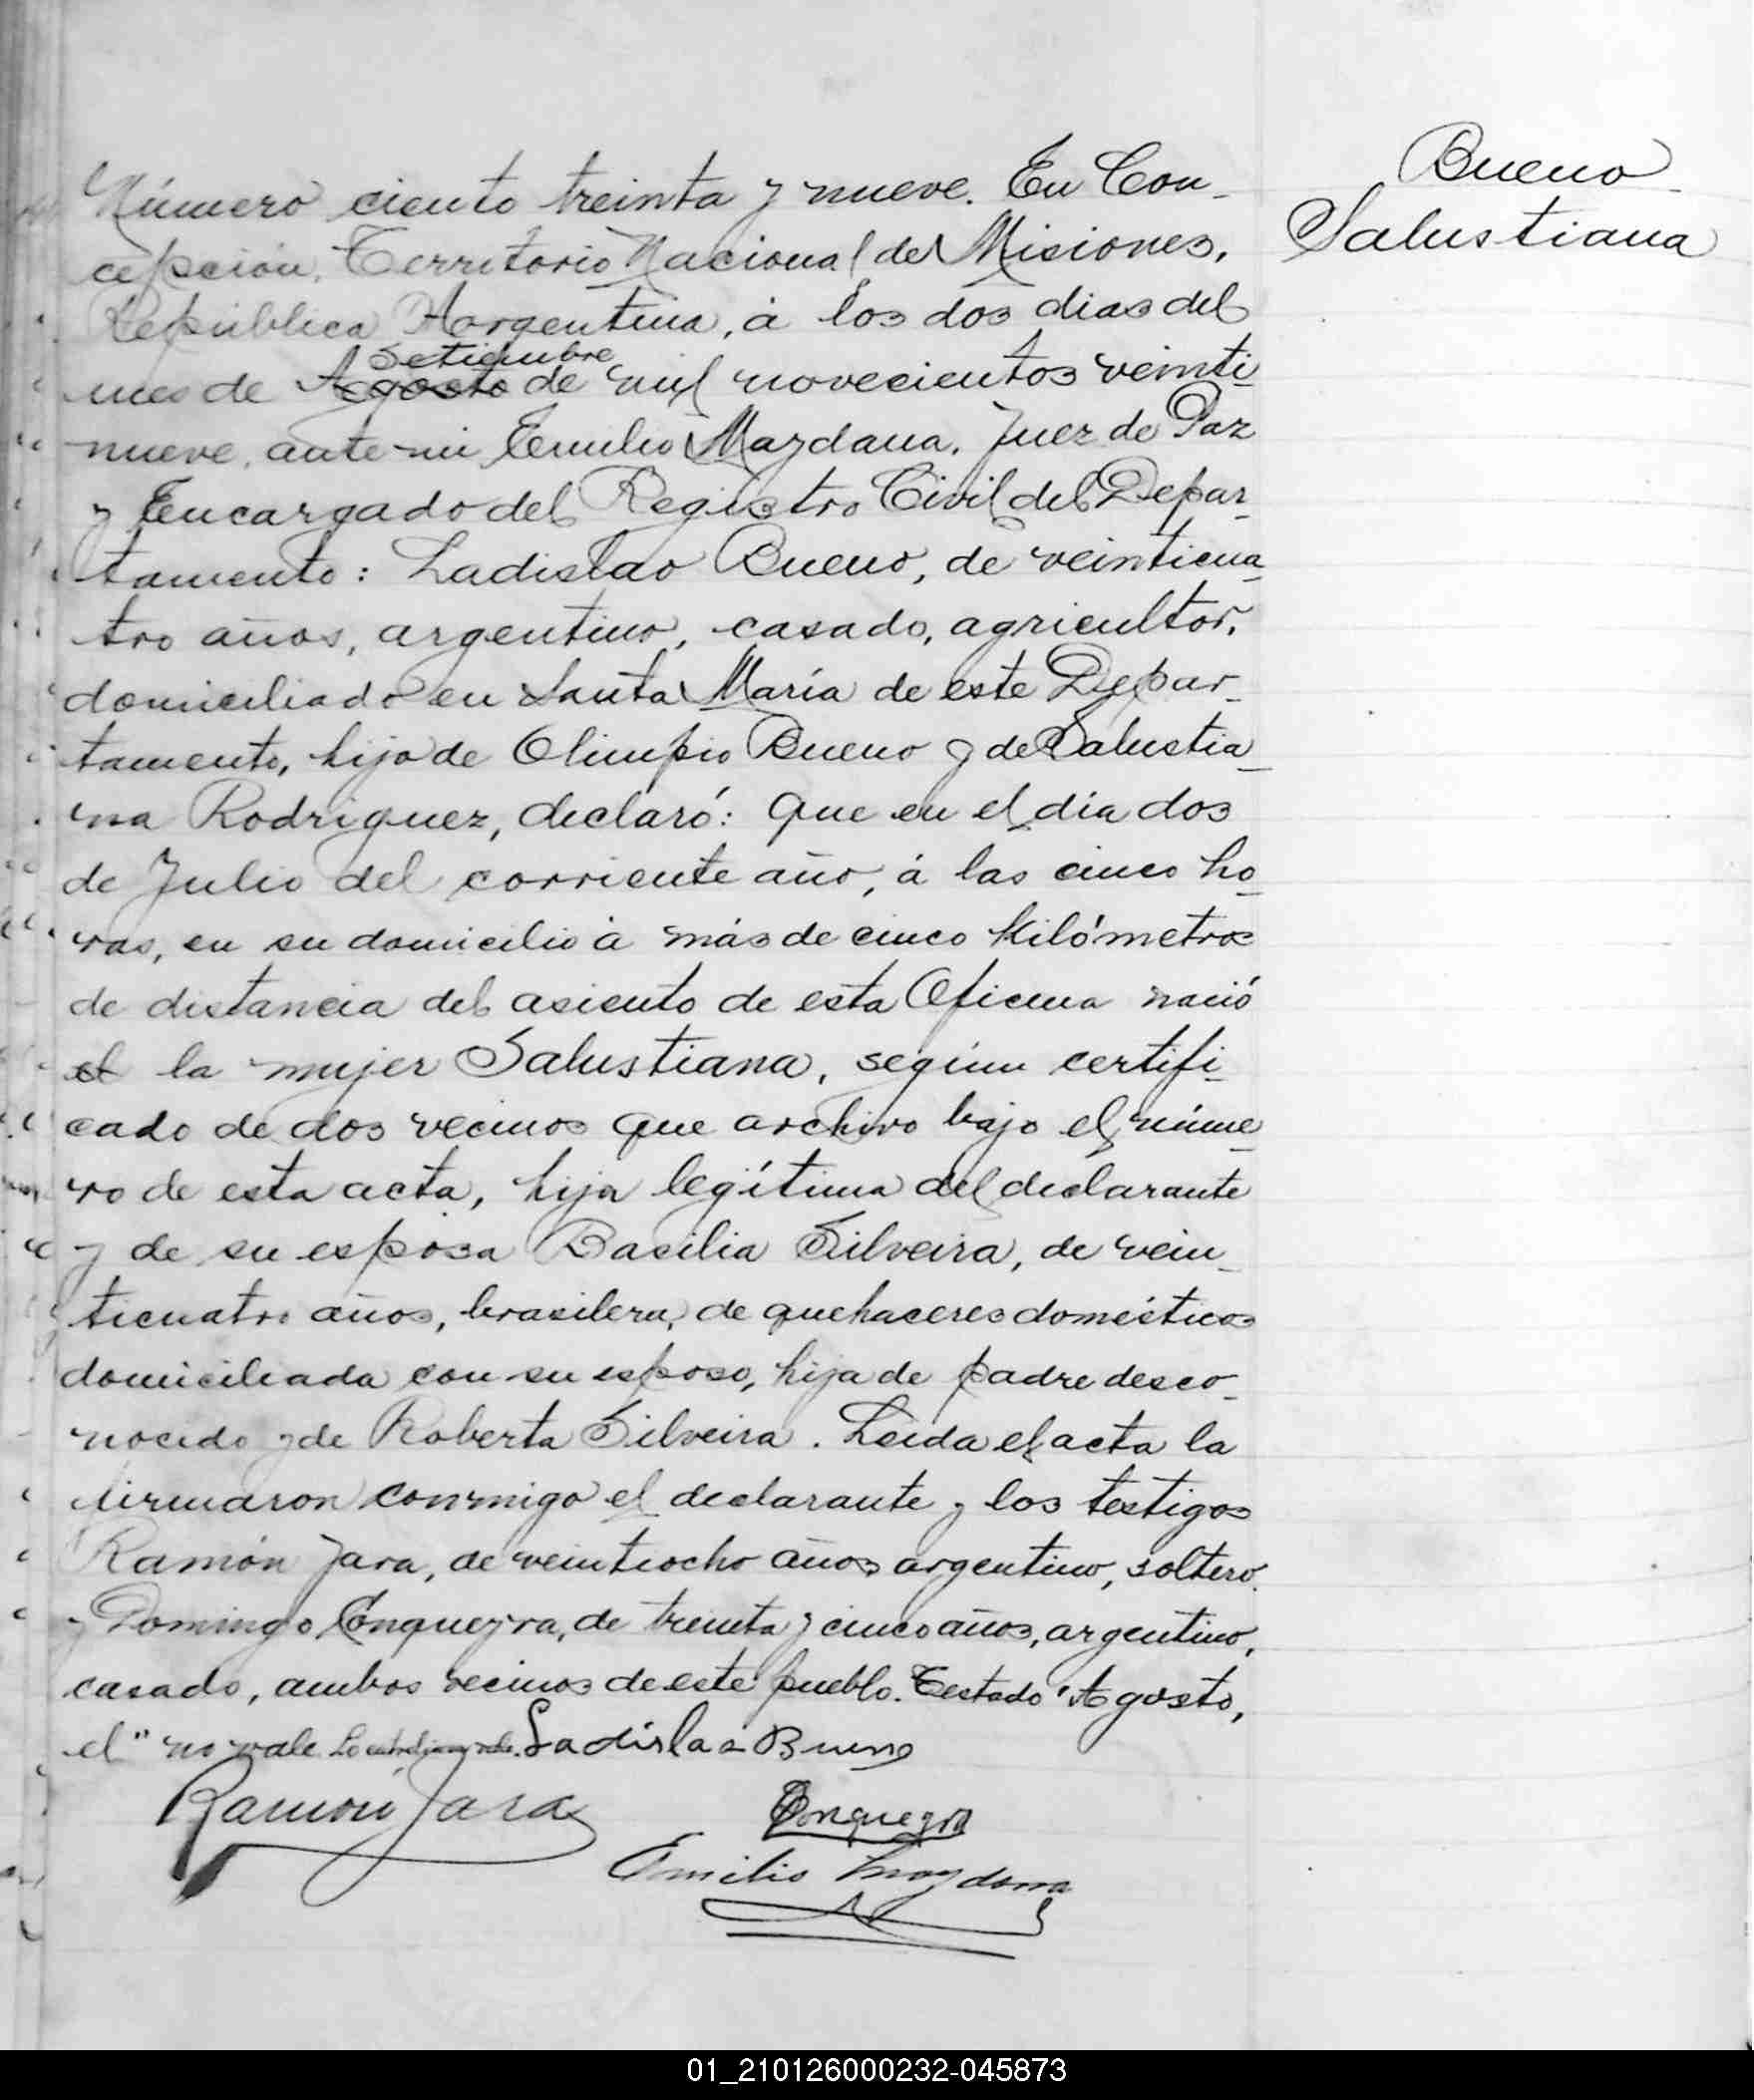 Bueno
Salustiana
Número ciento treinta y nueve. En Con-
cepción, Territorio Nacional de Misiones,
República Argentina, á los dos dias del
Setiembre
mes de Agosto de mil novecientos veinti
nueve, ante mi Emilio Maydana, Juez de Paz
y Encargado del Registro Civil del Depar-
tamento: Ladislao Bueno, de veinticua-
tro años, argentino, casado, agricultor,
domiciliado en Santa María de este Depar-
tamento, hijo de Olimpio Bueno y de Salustia-
na Rodriguez, declaró: Que en el día dos
de Julio del corriente año, á las cinco ho-
ras, en su domicilio á más de cinco Kilómetros
de distancia del asiento de esta Oficina nació
el la mujer Salustiana, según certifi-
cado de dos vecinos que archivo bajo el núme-
ro de esta acta, hija legítima del declarante
y de su esposa Basilia Silveira, de vein-
ticuatro años, brasilera, de quehaceres domésticos
domiciliada con su esposo, hija de padre desco-
nocido y de Roberta Silveira. Leida el acta la
firmaron conmigo el declarante y los testigos
Ramón Jara, de veintiocho años argentino, soltero
y Domingo Conqueyra, de treinta y cinco años, argentino,
casado, ambos vecinos de este pueblo. Testado "Agosto,
el" no vale Ladislao Bueno
Ramón Jara
Conqueyra
Emilio Maydana
01_210126000232-045873